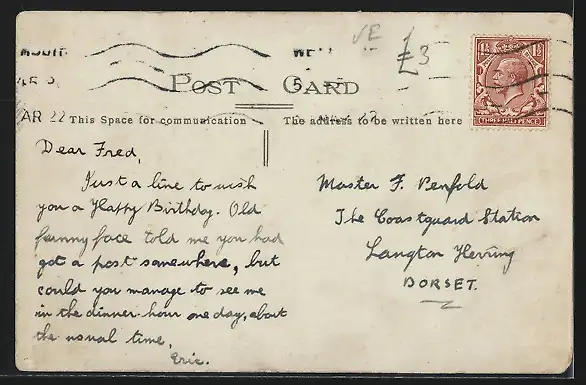 VE
£3
1½ 1½
THREE HALFPENCE
POST CARD
AR 22
This Space for communication
The address to be written here
Dear Fred,
Just a line to wish
you a Happy Birthday. Old
funny face told me you had
got a post somewhere, but
could you manage to see me
in the dinner-hour one day, about
the usual time,
Eric.
Master F. Penfold
The Coastguard Station
Langton Herring
DORSET.